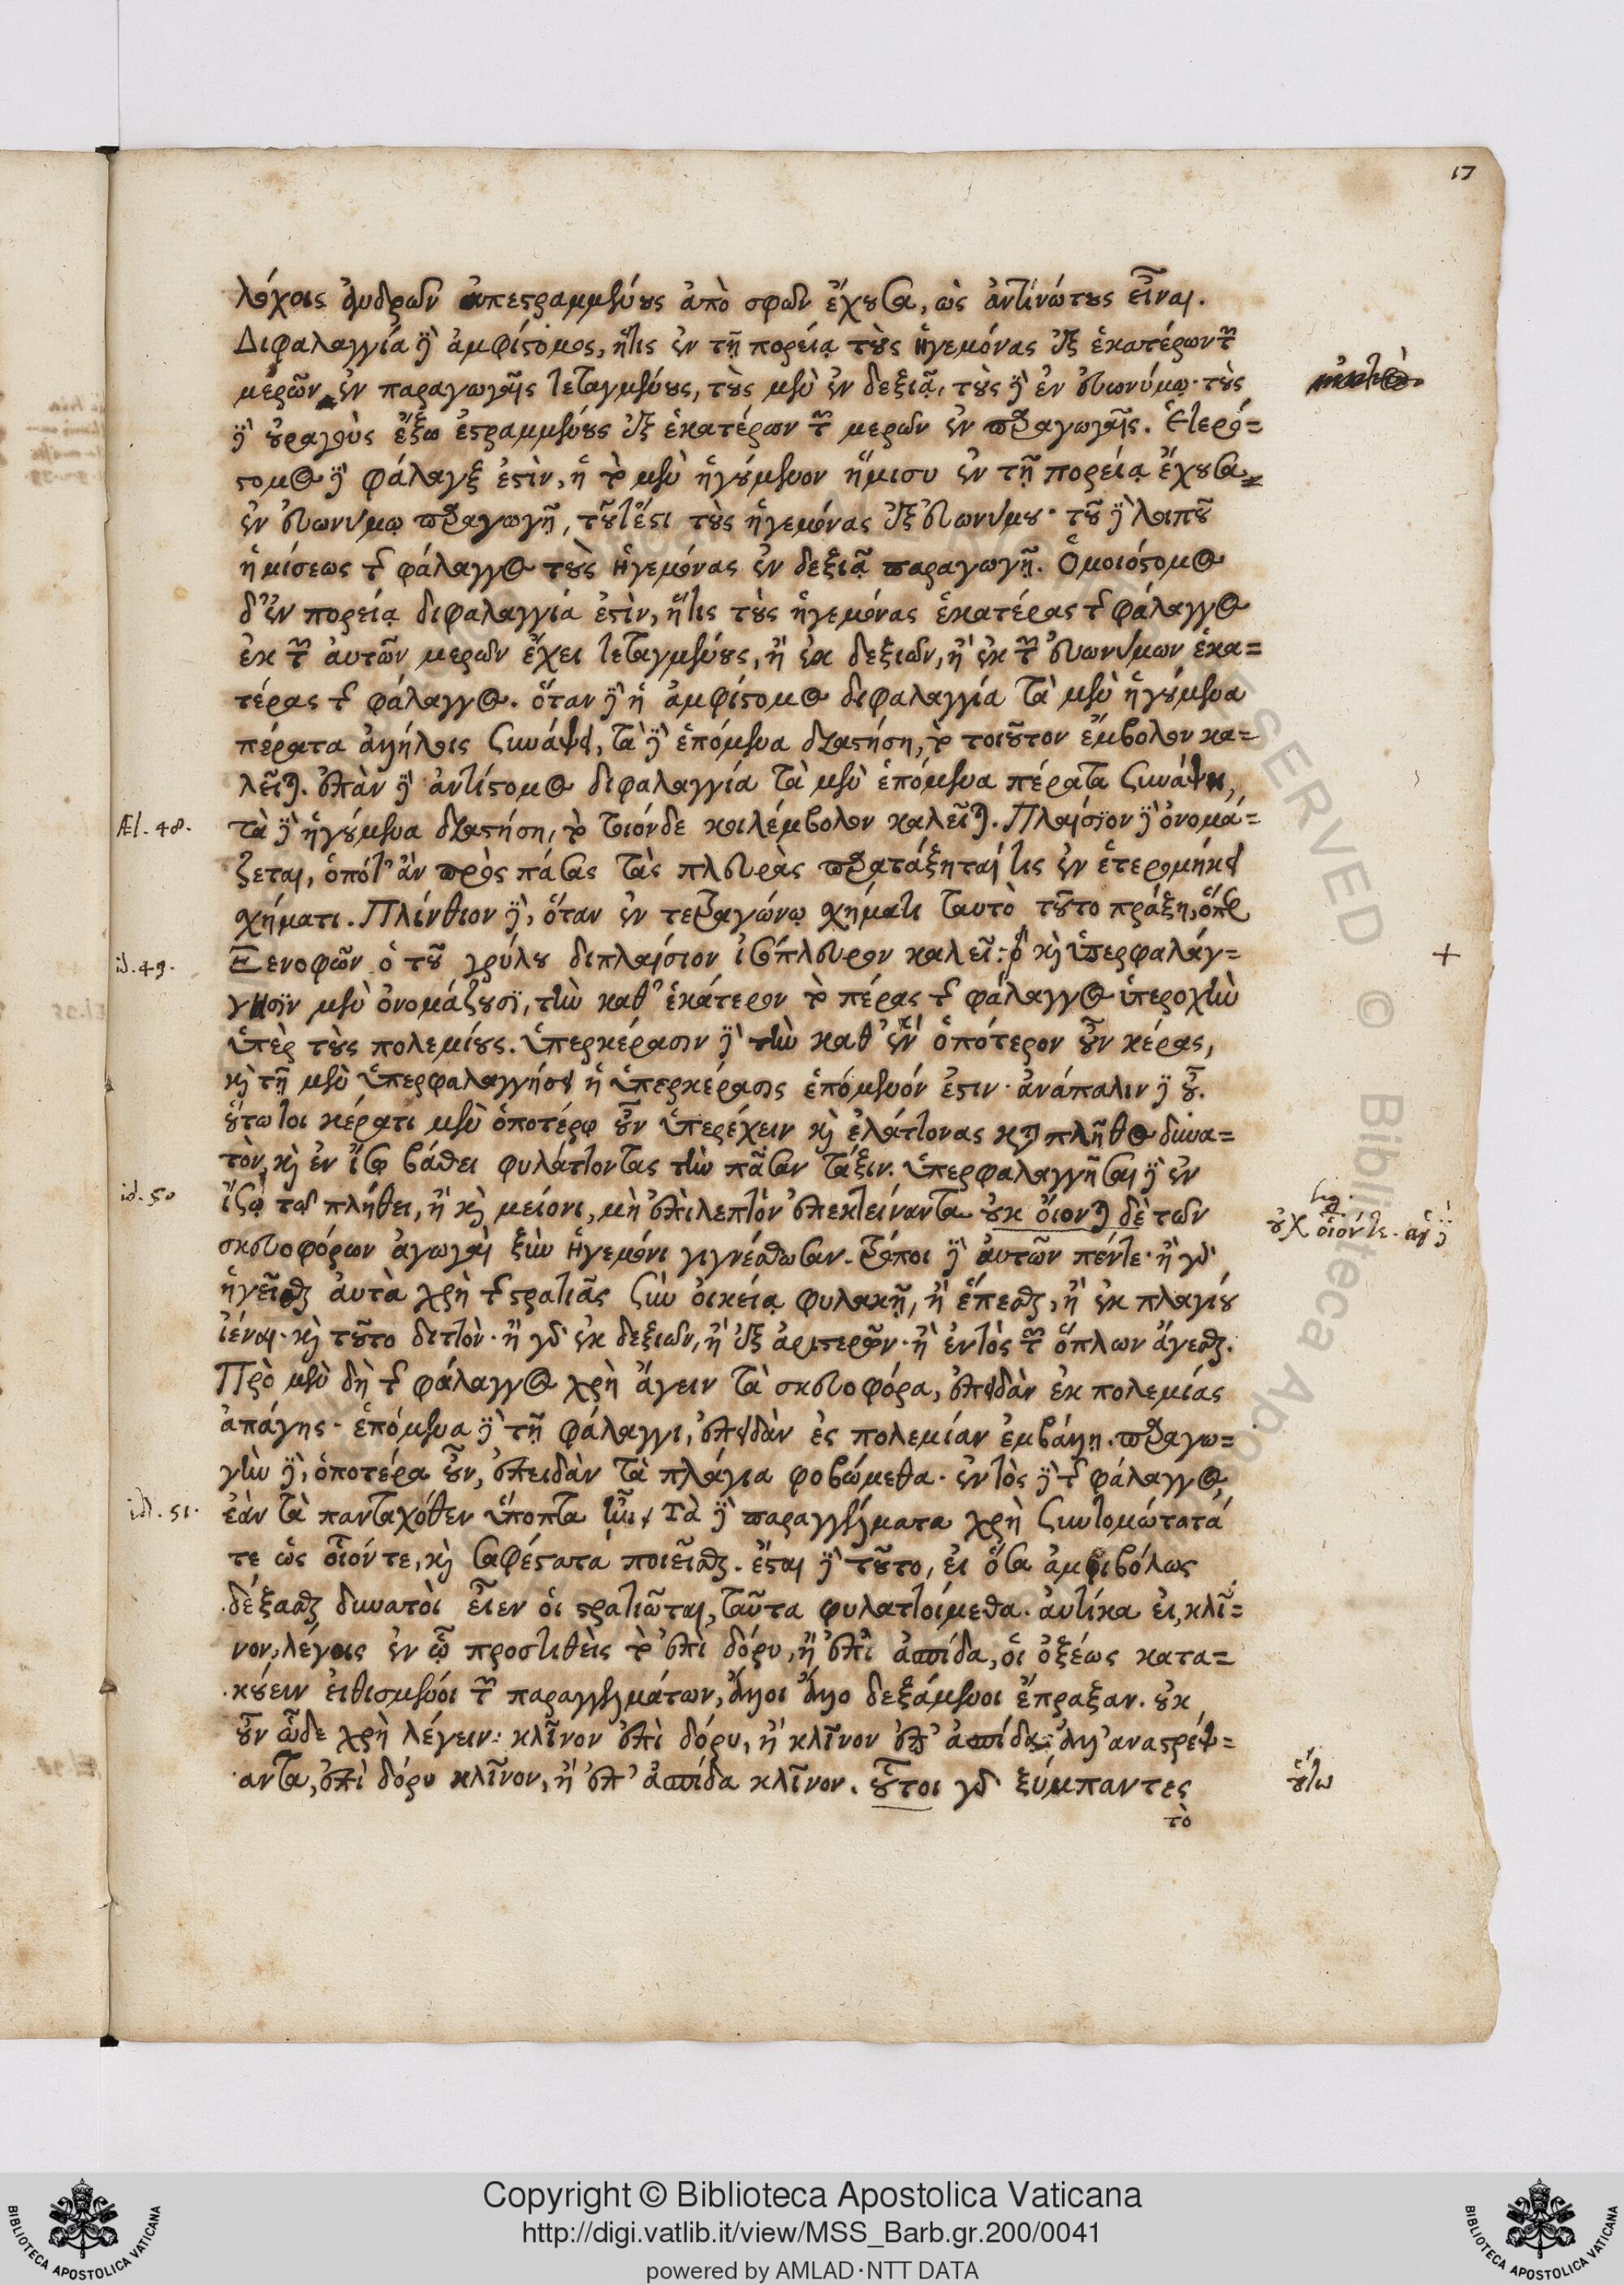 17
λόχοις ἀνδρῶν ἀπεστραμμένους ἀπὸ σφῶν ἔχουσα, ὡς ἀντινώτους εἶναι.
Διφαλαγγία δὲ ἀμφίστομος, ἥτις ἐν τῇ πορείᾳ τοὺς ἡγεμόνας ἐξ ἑκατέρων τῶν
μερῶν ἐν παραγωγαῖς τεταγμένους, τοὺς μὲν ἐν δεξιᾷ, τοὺς δὲ ἐν εὐωνύμῳ· τοὺς
δὲ οὐραγοὺς ἔξω ἐστραμμένους ἐξ ἑκατέρων τῶν μερῶν ἐν παραγωγαῖς. Ἑτερό=
στομος δὲ φάλαγξ ἐστὶν, ἡ τὸ μὲν ἡγούμενον ἥμισυ ἐν τῇ πορείᾳ ἔχουσα
ἐν εὐωνύμῳ παραγωγῇ, τουτέστι τοὺς ἡγεμόνας ἐξ εὐωνύμου· τοῦ δὲ λοιποῦ
ἡμίσεως τῆς φάλαγγος τοὺς ἡγεμόνας ἐν δεξιᾷ παραγωγῇ. Ὁμοιόστομος
δ' ἐν πορείᾳ διφαλαγγία ἐστὶν, ἥτις τοὺς ἡγεμόνας ἑκατέρας τῆς φάλαγγος
ἐκ τῶν αὐτῶν μερῶν ἔχει τεταγμένους, ἢ ἐκ δεξιῶν, ἢ ἐκ τῶν εὐωνύμων ἑκα=
τέρας τῆς φάλαγγος. ὅταν δὲ ἡ ἀμφίστομος διφαλαγγία τὰ μὲν ἡγούμενα
πέρατα ἀλλήλοις συνάψει, τὰ δὲ ἑπόμενα διαστήσῃ, τὸ τοιοῦτον ἔμβολον κα=
λεῖται. ἐπὰν δὲ ἀντίστομος διφαλαγγία τὰ μὲν ἑπόμενα πέρατα συνάψῃ,
Æl. 48. τὰ δὲ ἡγούμενα διαστήσῃ, τὸ τοιόνδε κοιλέμβολον καλεῖται. Πλαίσιον δὲ ὀνομά=
ζεται, ὁπότ' ἂν πρὸς πάσας τὰς πλευρὰς παρατάξηταί τις ἐν ἑτερομήκει
σχήματι. Πλίνθιον δὲ, ὅταν ἐν τετραγώνῳ σχήματι ταυτὸ τοῦτο πράξῃ, ὅπερ
id. 49. Ξενοφῶν ὁ τοῦ γρύλου διπλαίσιον ἰσόπλευρον καλεῖ: καὶ ὑπερφαλάγ= +
γησιν μὲν ὀνομάζουσι, τὴν καθ' ἑκάτερον τὸ πέρας τῆς φάλαγγος ὑπεροχὴν
ὑπὲρ τοὺς πολεμίους. ὑπερκέρασιν δὲ τὴν καθ' ἓν ὁπότερον οὖν κέρας,
καὶ τῇ μὲν ὑπερφαλαγγήσει ἡ ὑπερκέρασις ἑπόμενόν ἐστιν· ἀνάπαλιν δὲ οὔ.
οὕτω τοι κέρατι μὲν ὁποτέρῳ οὖν ὑπερέχειν καὶ ἐλάττονας κατὰ πλῆθος δυνα=
τὸν, καὶ ἐν ἴσῳ βάθει φυλάττοντας τὴν πᾶσαν τάξιν. ὑπερφαλαγγῆσαι δὲ ἐν
id. 50 ἴσῳ τῷ πλήθει, ἢ καὶ μείονι, μὴ ἐπὶ λεπτὸν ἐπεκτείναντα οὐκ οἷόν ται δὲ τῶν
οὐχ οἷόν τε. αἱ δὲ
σκευοφόρων ἀγωγαὶ ξὺν ἡγεμόνι γιγνέσθωσαν. τρόποι δὲ αὐτῶν πέντε· ἢ γὰρ
ἡγεῖσθαι αὐτὰ χρὴ τῆς στρατιᾶς σὺν οἰκείᾳ φυλακῇ, ἢ ἕπεσθαι, ἢ ἐκ πλαγίου
ἰέναι· καὶ τοῦτο διττὸν· ἢ γὰρ ἐκ δεξιῶν, ἢ ἐξ ἀριστερῶν· ἢ ἐντὸς τῶν ὅπλων ἄγεσθαι.
Πρὸ μὲν δὴ τῆς φάλαγγος χρὴ ἄγειν τὰ σκευοφόρα, ἐπειδὰν ἐκ πολεμίας
ἀπάγῃς· ἑπόμενα δὲ τῇ φάλαγγι, ἐπειδὰν ἐς πολεμίαν ἐμβάλλῃ. παραγω=
γὴν δὲ, ὁποτέρα οὖν, ἐπειδὰν τὰ πλάγια φοβώμεθα. ἐντὸς δὲ τῆς φάλαγγος,
id. 51. ἐὰν τὰ πανταχόθεν ὕποπτα ᾖ. Τὰ δὲ παραγγέλματα χρὴ συντομώτατά
τε ὡς οἷόν τε, καὶ σαφέστατα ποιεῖσθαι. ἔσται δὲ τοῦτο, εἰ ὅσα ἀμφιβόλως
δέξασθαι δυνατοὶ εἶεν οἱ στρατιῶται, ταῦτα φυλαττοίμεθα. αὐτίκα εἰ, κλῖ=
νον, λέγοις ἐν ᾧ προστιθεὶς τὸ ἐπὶ δόρυ, ἢ ἐπὶ ἀσπίδα, οἱ ὀξέως κατα=
κούειν εἰθισμένοι τῶν παραγγελμάτων, ἄλλοι ἄλλο δεξάμενοι ἔπραξαν. οὐκ
οὖν ὧδε χρὴ λέγειν: κλῖνον ἐπὶ δόρυ, ἢ κλῖνον ἐπ' ἀσπίδα: ἀλλ' ἀναστρέψ=
αντα, ἐπὶ δόρυ κλῖνον, ἢ ἐπ' ἀσπίδα κλῖνον. οὗτοι γὰρ ξύμπαντες
οὕτω
τὸ
Copyright © Biblioteca Apostolica Vaticana
http://digi.vatlib.it/view/MSS_Barb.gr.200/0041
powered by AMLAD·NTT DATA
BIBLIOTECA APOSTOLICA VATICANA
BIBLIOTECA APOSTOLICA VATICANA